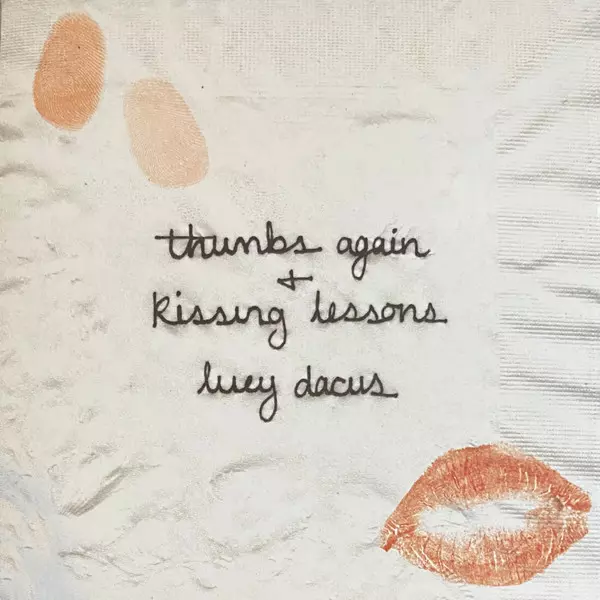 thumbs again
+
kissing lessons
lucy dacus